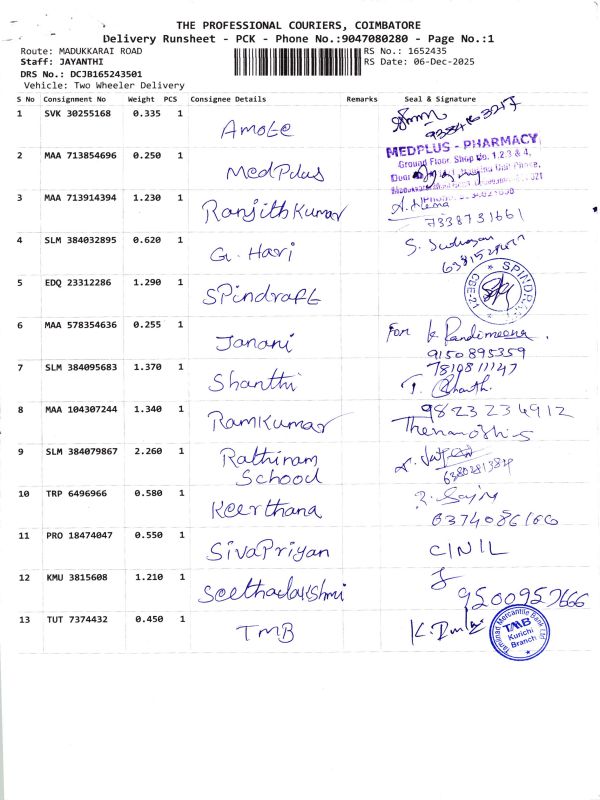 THE PROFESSIONAL COURIERS, COIMBATORE
Delivery Runsheet - PCK - Phone No.:9047080280 - Page No.:1
Route: MADUKKARAI ROAD
Staff: JAYANTHI
DRS No.: DCJB165243501
Vehicle: Two Wheeler Delivery
RS No.: 1652435
RS Date: 06-Dec-2025
S No Consignment No Weight PCS Consignee Details Remarks Seal & Signature
1 SVK 30255168 0.335 1 Amote
2 MAA 713854696 0.250 1 MedPlus
MEDPLUS - PHARMACY
Ground Floor, Shop No. 1,2,3 & 4,
3 MAA 713914394 1.230 1 Ranjith Kumar A. Hema
7338731661
4 SLM 384032895 0.620 1 G. Hari
5 EDQ 23312286 1.290 1 SPindraft
SPINDR
CBE-21
6 MAA 578354636 0.255 1 Janani For K. Pandimeena.
9150895359
7 SLM 384095683 1.370 1 Shanthi 7810811147
8 MAA 104307244 1.340 1 RamKumar 9823234912
9 SLM 384079867 2.260 1 Rathinam
School
10 TRP 6496966 0.580 1 Keerthana
11 PRO 18474047 0.550 1 SivaPriyan CINIL
12 KMU 3815608 1.210 1 Seethalakshmi
9500957666
13 TUT 7374432 0.450 1 TMB
Tamilnad Mercantile Bank Ltd
TMB
Kurichi
Branch